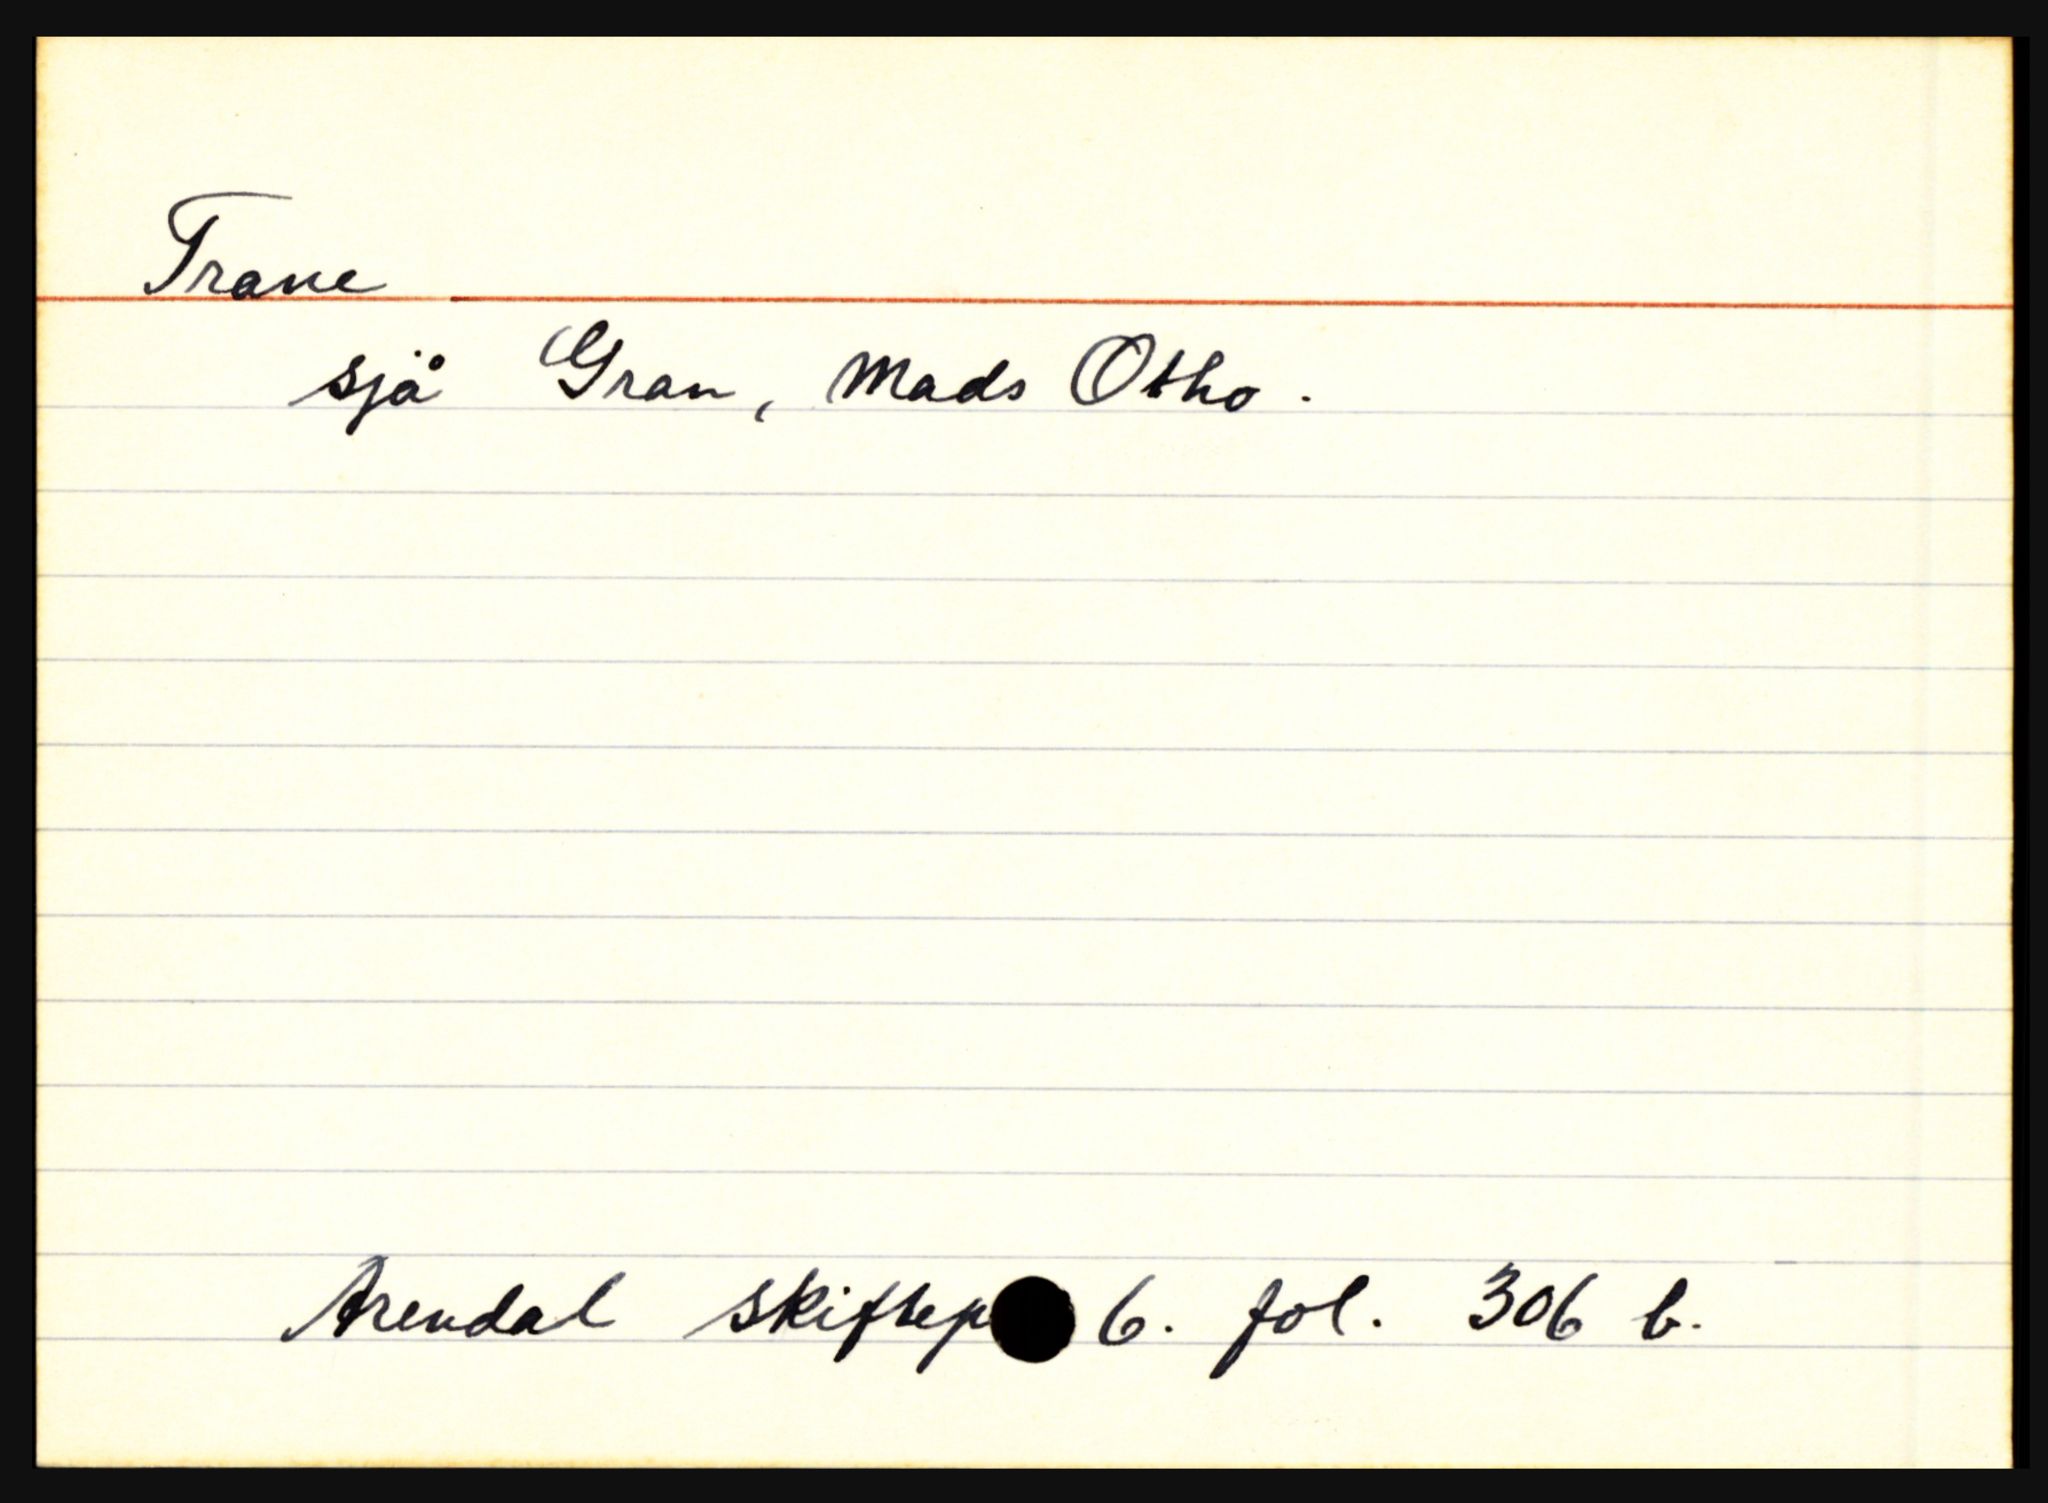 Trane
sjå Gran, Mads Otho.
Arendal skiftep 6. fol. 306 b.